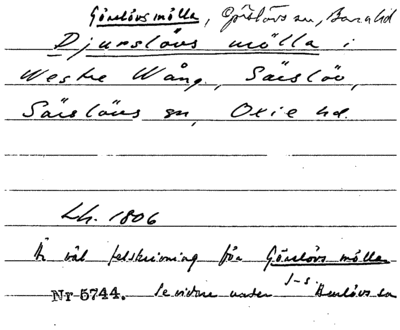 Görslövsmölla, Görslövs sn, Bara hd
Djurslövs mölla i
Westre Wång, Särslöv,
Särslövs sn, Oxie hd.
Lh. 1806
Är väl felskrivning för Görslövs mölla
Nr 5744. Se vidare under J-s Burlövs sn